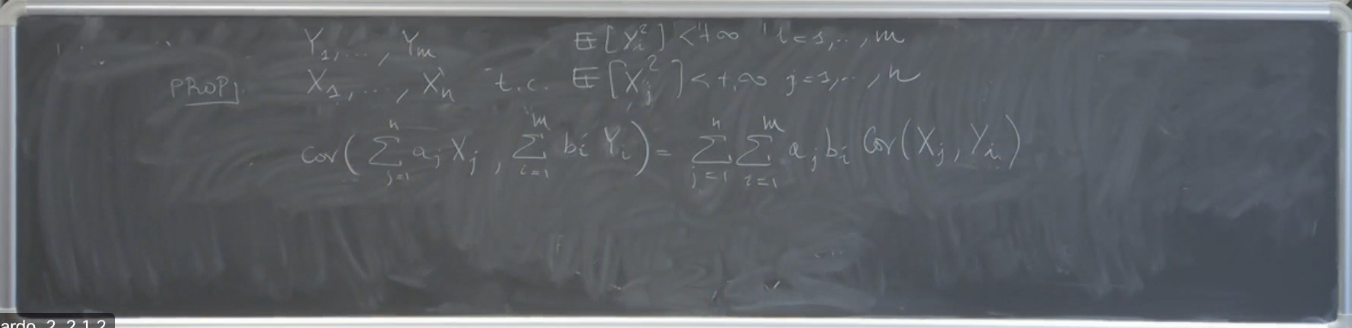 Y₁, ..., Yₘ E[Yᵢ²] < +∞ i=1, .., m
PROP. X₁, ..., Xₙ t.c. E[Xⱼ²] < +∞ j=1, .., n
cov( ∑_{j=1}^{n} aⱼ Xⱼ , ∑_{i=1}^{m} bᵢ Yᵢ ) = ∑_{j=1}^{n} ∑_{i=1}^{m} aⱼ bᵢ Cov(Xⱼ, Yᵢ)
2 2 1 2